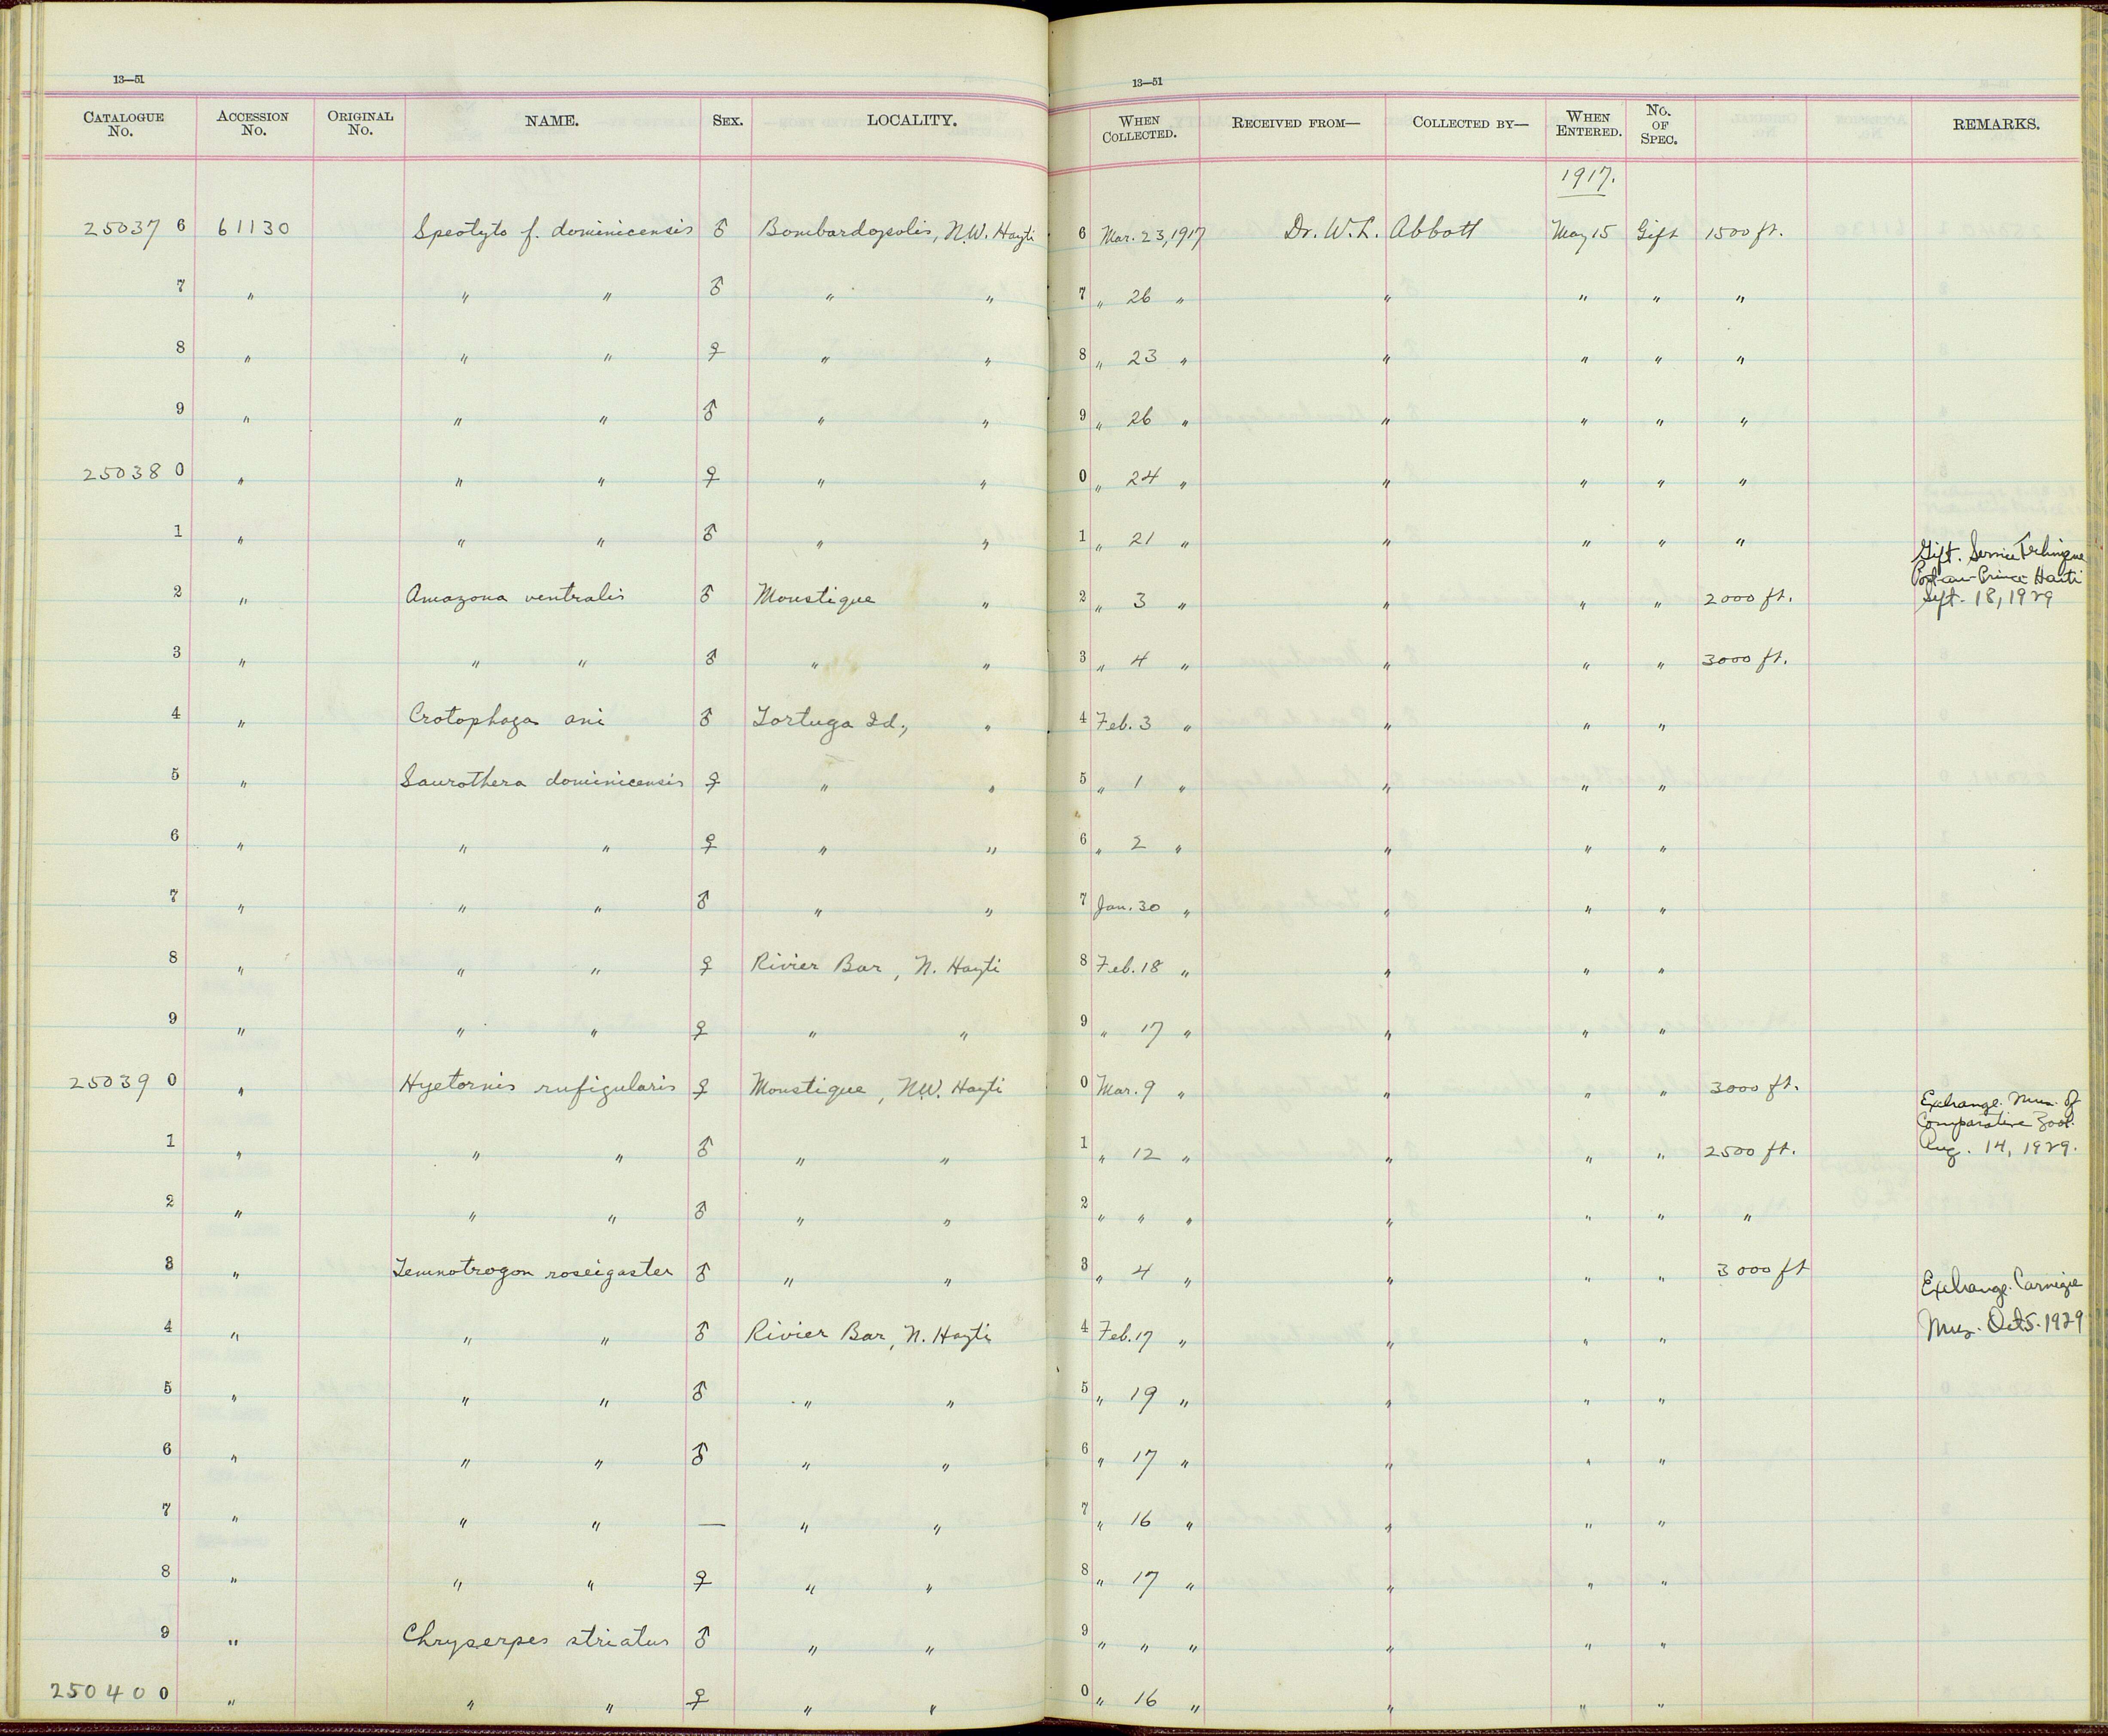 13—51
13—51
CATALOGUE No. ACCESSION No. ORIGINAL No. NAME. SEX. LOCALITY. WHEN COLLECTED. RECEIVED FROM— COLLECTED BY— WHEN ENTERED. No. OF SPEC. REMARKS.
1917.
25037 6 61130 Speotyto f. dominicensis ♂ Bombardopolis, N.W. Hayti 6 Mar. 23, 1917 Dr. W. L. Abbott May 15 Gift 1500 ft.
7 " " " ♂ " " 7 " 26 " " " " "
8 " " " ♀ " " 8 " 23 " " " " "
9 " " " ♂ " " 9 " 26 " " " " "
25038 0 " " " ♀ " " 0 " 24 " " " " "
1 " " " ♂ " " 1 " 21 " " " " "
2 " Amazona ventralis ♂ Moustique " 2 " 3 " " " " 2000 ft. Gift. Service Technique Port-au-Prince Haiti Sept. 18, 1929
3 " " " ♂ " " 3 " 4 " " " " 3000 ft.
4 " Crotophaga ani ♂ Tortuga Id., " 4 Feb. 3 " " " "
5 " Saurothera dominicensis ♀ " " 5 " 1 " " " "
6 " " " ♀ " " 6 " 2 " " " "
7 " " " ♂ " " 7 Jan. 30 " " " "
8 " " " ♀ Rivier Bar, N. Hayti 8 Feb. 18 " " " "
9 " " " ♀ " " 9 " 17 " " " "
25039 0 " Hyetornis rufigularis ♀ Moustique, N.W. Hayti 0 Mar. 9 " " " " 3000 ft.
1 " " " ♂ " " 1 " 12 " " " " 2500 ft. Exchange. Mus. of Comparative Zool. Aug. 14, 1929.
2 " " " ♂ " " 2 " " " " " " "
3 " Temnotrogon roseigaster ♂ " " 3 " 4 " " " " 3000 ft
4 " " " ♂ Rivier Bar, N. Hayti 4 Feb. 17 " " " " Exchange. Carnegie Mus. Oct 5. 1929
5 " " " ♂ " " 5 " 19 " " " "
6 " " " ♂ " " 6 " 17 " " " "
7 " " " — " " 7 " 16 " " " "
8 " " " ♀ " " 8 " 17 " " " "
9 " Chryserpes striatus ♂ " " 9 " " " " " "
25040 0 " " " ♀ " " 0 " 16 " " " "